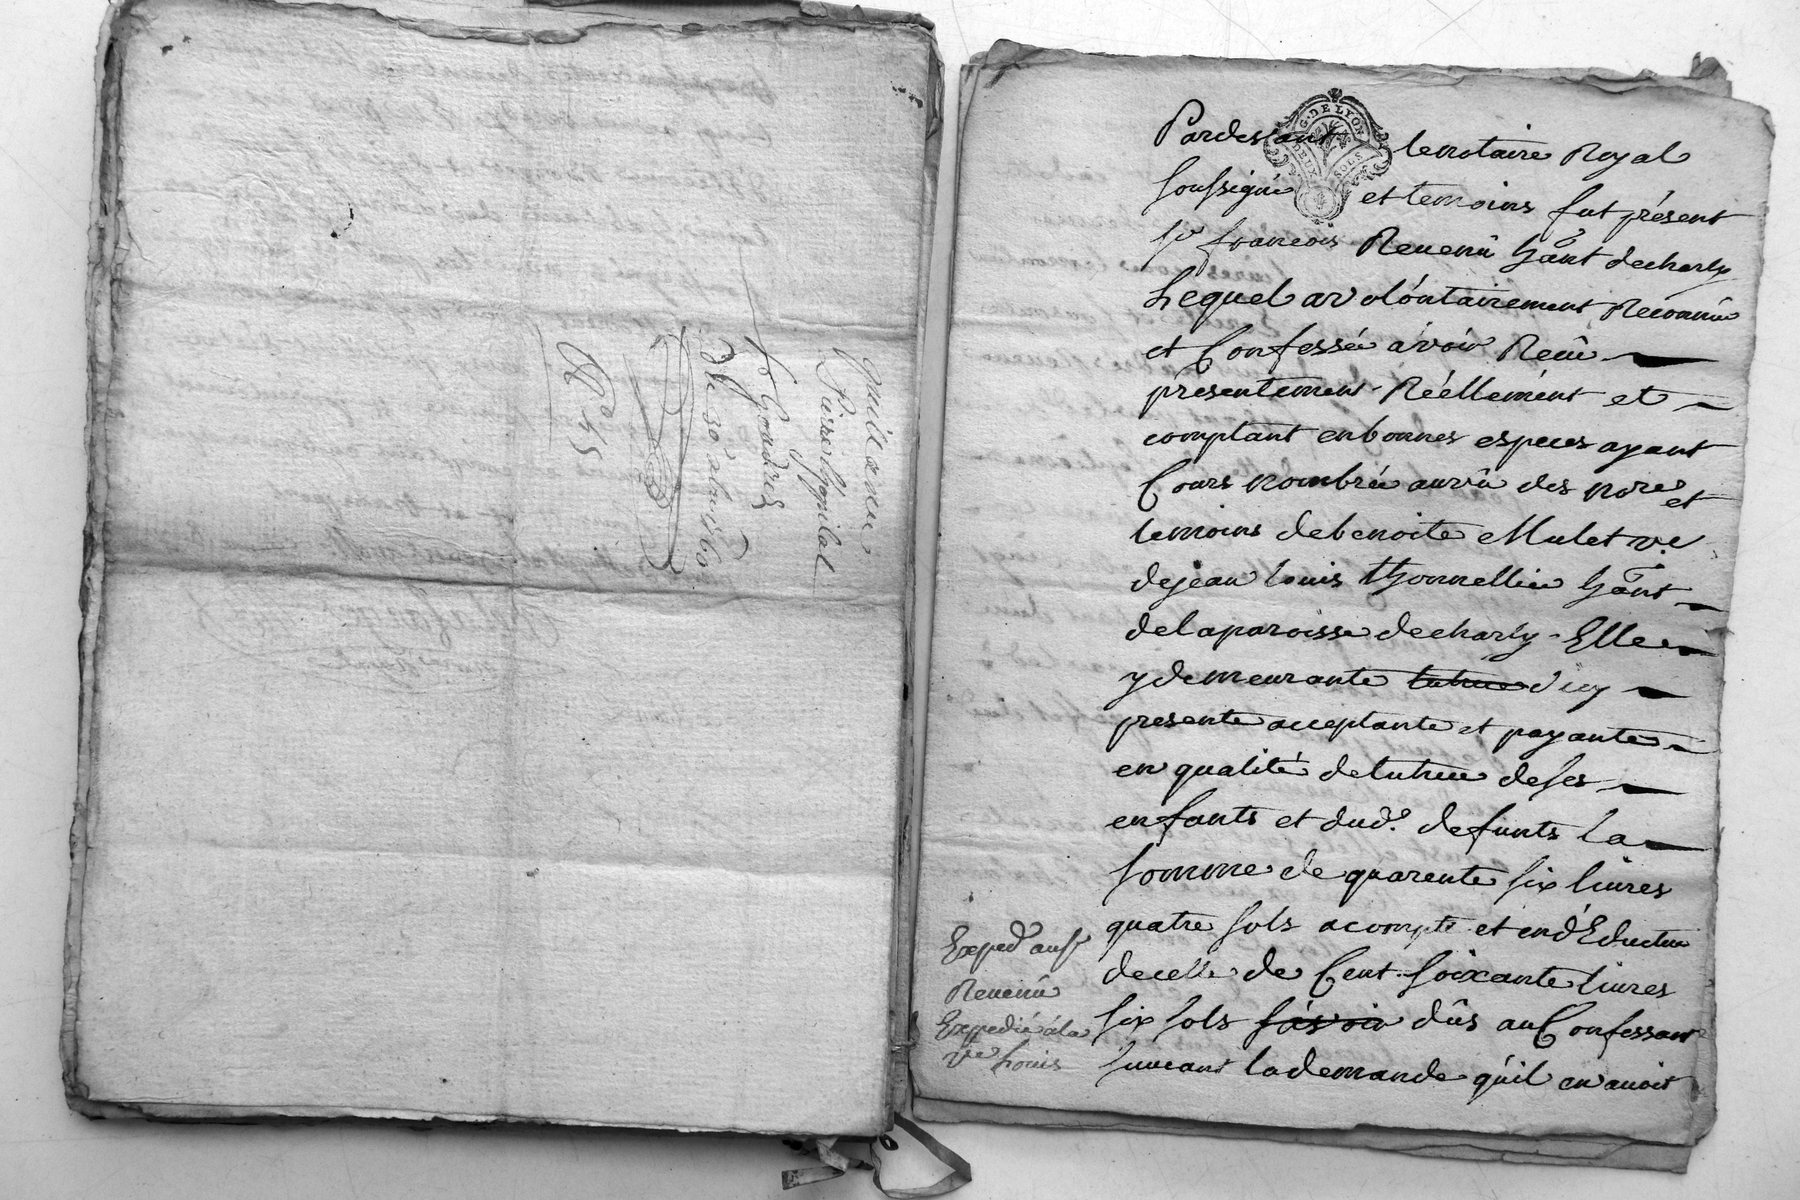 quittance
Pierre hopital
a Goudres
Du 30e abril 1760
No 45
Pardevant le notaire Royal
G. DE LYON
DEUX SOLS
soussigné et temoins fut présent
sr francois Revenû habant decharly
Lequel a volóntairement Reconnu
et Confessée avoir Reçû
présentement Réellement et
comptant en bonnes especes ayant
Cours nombrée aux vû des nores et
temoins de benoite Mulet ve
de jean louis thonnellieu habant
de la paroisse decharly Elle
y demeurante tutrice d'icy
presente acceptante et payante
en qualité de tutrice de ses
enfants et dud. defunts la
somme de quarente six livres
quatre sols a compte et en déduction
de celle de Cent soixante livres
six sols sávoir dûs au Confessant
suivant la demande qu'il en avoit
Expedé au sr
Revenû
Expedié á la
ve Louis